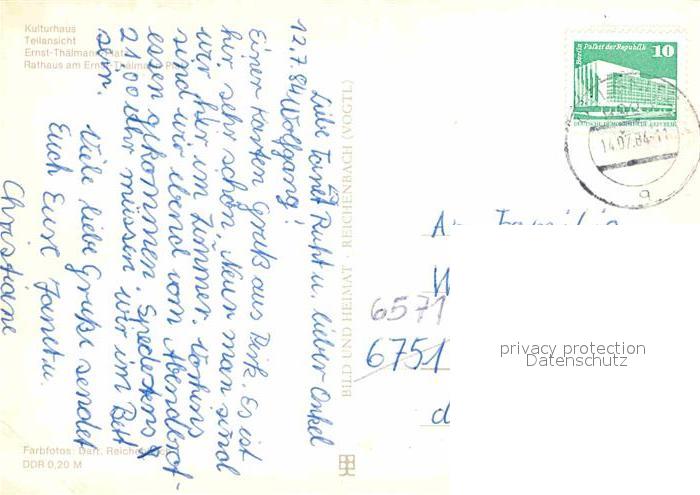 Kulturhaus
Teilansicht
Ernst-Thälmann-Platz
Rathaus am Ernst-Thälmann-Platz
12.7.84
Liebe Tante Ruth u. lieber Onkel
Wolfgang!
Einen Karten Gruß aus Es ist
hir sehr schön. Neun man sind
wir hir im Zimmer.
sind wir ebend vom Abendbrot-
essen gekommen. Spedestens
21.00 Uhr müssen wir im Bett
sein.
Viele liebe Grüße sendet
Euch Eure u.
Christiane
Farbfotos: Darr, Reichenbach
DDR 0,20 M
BILD UND HEIMAT · REICHENBACH (VOGTL)
Berlin Palast der Republik
10
DEUTSCHE DEMOKRATISCHE REPUBLIK
14.07.84-11
a
An Familie
W
6571
6751
d
privacy protection
Datenschutz